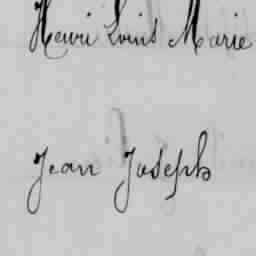 Henri Louis Marie
Jean Joseph